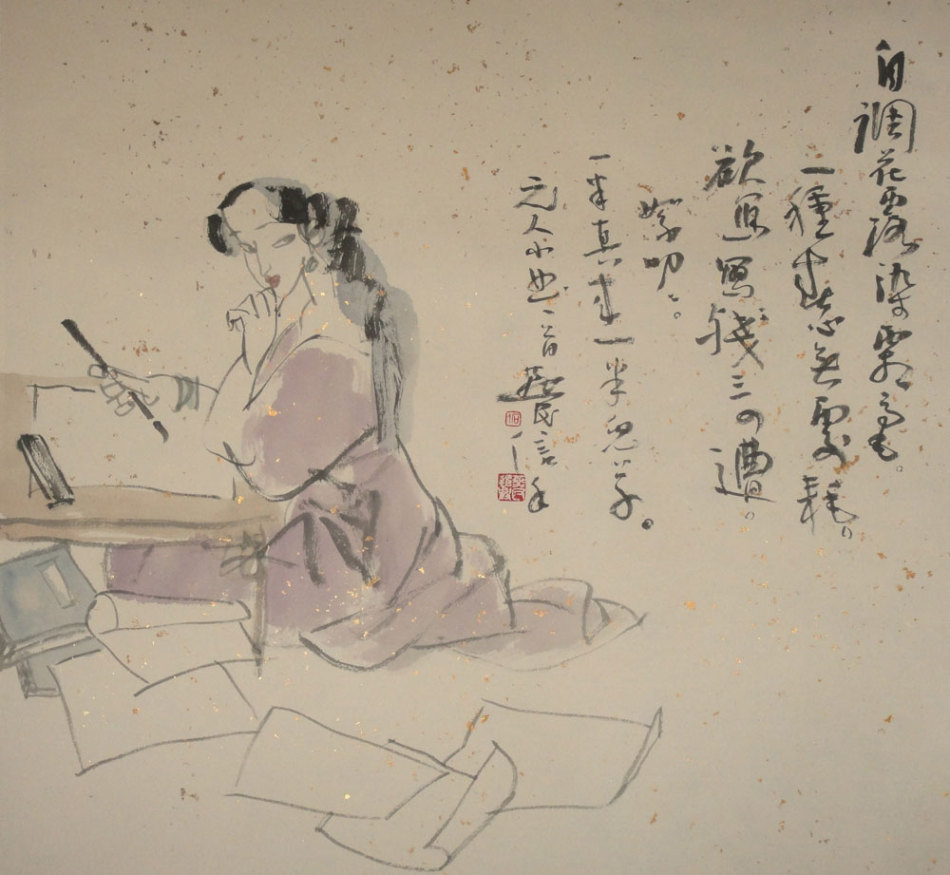 自調花露染霜毫。
一種春心无處
欲寫寫殘三四遭。
絮叨〻。
一半真連一半兒草。
元人小曲一首 民信手